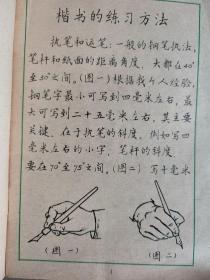 楷书的练习方法
执笔和运笔：一般的钢笔执法，
笔杆和纸面的距离角度，大都在40°
至50°之间。(图一)根据我个人经验，
钢笔字最小可写到四毫米左右，最
大可写到二十五毫米左右，其主要
关键，在于执笔的斜度，例如写四
毫米左右的小字，笔杆的斜度，
要在70°至75°之间。(图二)写十毫米
(图一)
(图二)
1